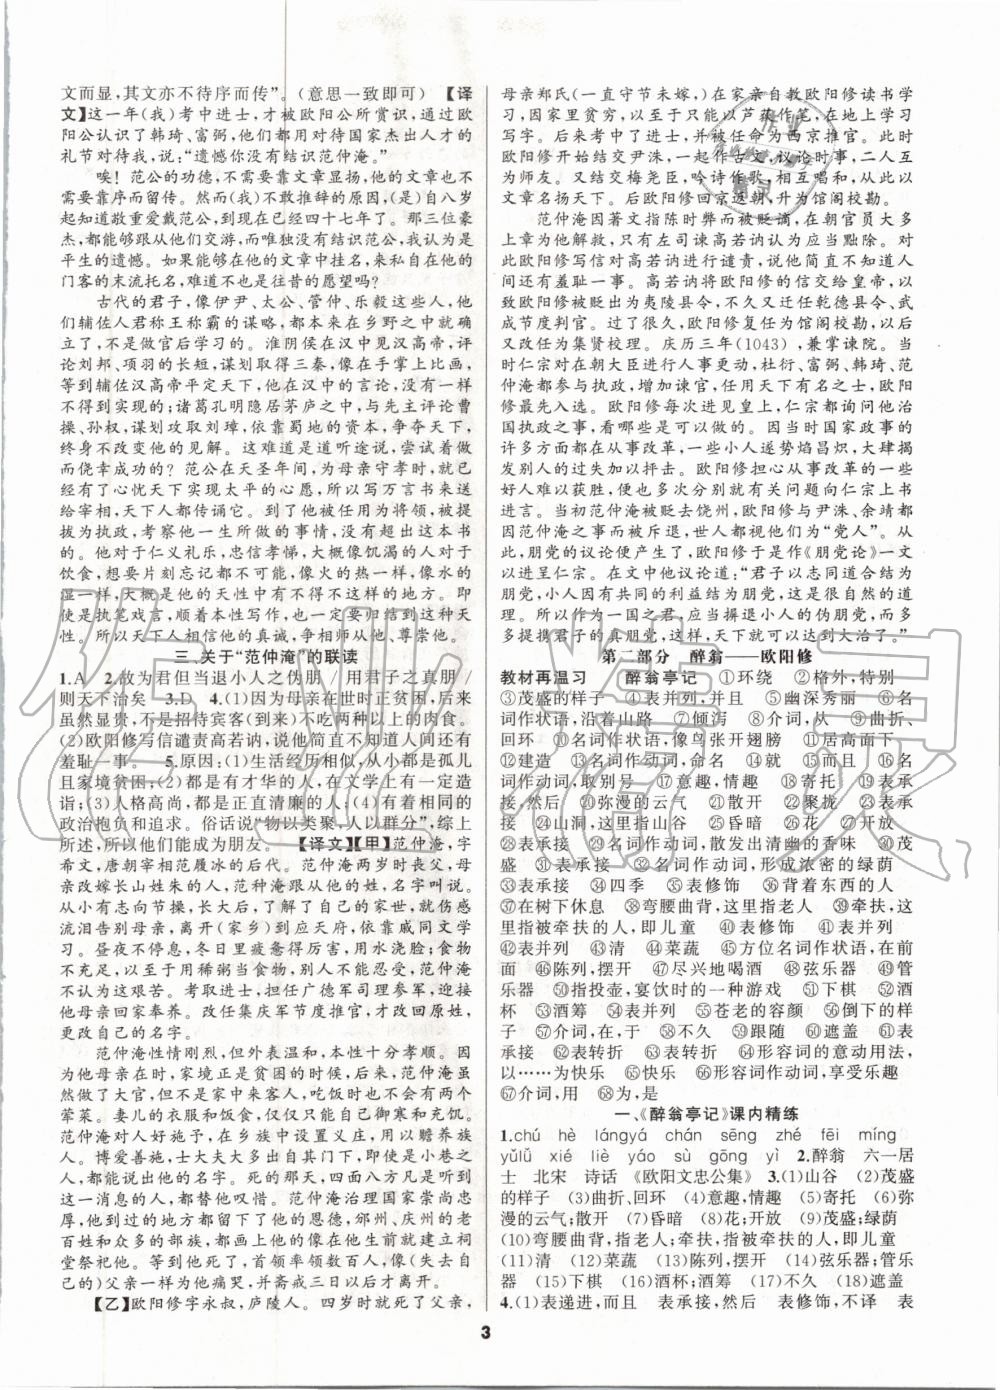 文而显,其文亦不待序而传"。(意思一致即可) 【译
文】这一年(我)考中进士,才被欧阳公所赏识,欧
阳公认识了韩琦、富弼,他们都用对待国家杰出人才的
礼节对待我,说:"遗憾你没有结识范仲淹。"
唉!范公的功德,不需要文章显扬,他的文章也不
需要靠序而留传。然而(我)不敢推辞的原因,(是)自八岁
起知道敬重爱戴范公,到现在已经四十七年了。那三位豪
杰,都能够跟从他们交游,而唯独没有结识范公,我认为是
平生的遗憾。如果能够在他的文章中挂名,来私自在他的
门客的末流托名,难道不是往昔的愿望吗?
古代的君子,像伊尹、太公、管仲、乐毅这些人,他
们辅佐人君称王称霸的谋略,都本来在乡野之中就具
有了,不是做官后学习的。淮阴侯在汉中见汉高帝,评
论刘邦、项羽的长短,谋划取得三秦,像在手掌上比画,
等到辅佐汉高帝平定天下,他在汉中的言语,没有一样
不得到实现的;诸葛孔明隐居茅庐之中,与先主评论曹
操、孙权,谋划攻取刘璋,依靠蜀地的资本,争夺天下,
终身不改变他的见解。这难道是道听途说,尝试着做
而侥幸成功的?范公在天圣年间,为母亲守孝时,就已
经有了心忧天下实现太平的心愿,所以写万言书来送
给宰相,天下人都传诵它。到了他任用为将领,被提
拔为执政,考察他一生所做的事情,没有超出这本书
的。他对于仁义礼乐,忠信孝悌,大概像饥渴的人对于
饮食,想要片刻忘记都不可能,像火的热一样,像水的
湿一样,大概是他的天性中有非这样不可的地方。即
使是执笔戏言,顺着本性写作,也一定要归结到这种天
性。所以天下人相信他的真诚,争相师从他、尊崇他。
三、关于"范仲淹"的联读
1.A 2.故为君但当退小人之伪朋/用君子之真朋/
则天下治矣 3.D 4.(1)因为母亲在世时正贫困,后来
虽显贵,不是招待宾客(到来)不吃两种以上的肉食。
(2)欧阳修写信谴责高若讷,说简直不知道人间还有
羞耻一事。 5.原因:(1)生活经历相似,从小都是孤儿
且家境贫困;(2)都是有才华的人,在文学上有一定造
诣;(3)人格高尚,都是正直清廉的人;(4)有着相同的
政治抱负和追求。俗话说"物以类聚,人以群分",综上
所述,所以他们能成为朋友。 【译文】【甲】范仲淹,字
希文,唐朝宰相范履冰的后代。范仲淹两岁时丧父,母
亲改嫁长山姓朱的人,范仲淹跟从他的姓,名字叫说。
从小有志向节操,长大后,了解了自己的家世,就伤感
流泪告别母亲,离开(家乡)到应天府,依靠戚同文学
习。昼夜不停息,冬日里疲惫得厉害,用水浇脸;食物
不充足,以至于用稀粥当食物,别人不能忍受,范仲淹
不认为这艰苦。考取进士,担任广德军司理参军,迎接
他母亲回来奉养。改任集庆军节度推官,才改回原姓,
更改自己的名字。
范仲淹性情刚烈,但外表温和,本性十分孝顺。因
为母亲在世时,家境正是贫困的时候,后来范仲淹虽然
做了大官,但不是家中来客人,吃饭时吃不到两个有
荤菜。妻儿的衣服和饭食,仅仅只能自己御寒和充饥。
范仲淹对人好施予,在乡族中设置义庄,用以赡养族
人。博爱善施,士大夫大多出自其门下,即使是小巷之
人,都能说出他的名字。他死的那天,四面八方凡是听
说消息的人,都替他叹惜。范仲淹治理国家崇尚忠
厚,他到过的地方大多施予他的恩德,邠州、庆州的老
百姓和众多部族,都画上他的像在他生前就建立祠
堂祭祀他。等到他去世,首领率领数百人,像(失去自
己的)父亲一样为他痛哭,并斋戒三日以后才离开。
【乙】欧阳修字永叔,庐陵人。四岁时就死了父亲,
母亲郑氏(一直守节未嫁,)在家亲自教欧阳修读书学
习,因家里贫穷,以至于只能以芦荻作笔,在地上学习
写字。后来考中了进士,并被任命为西京推官。此时
欧阳修开始结交尹洙,一起作古文,议论时事,二人互
为师友。又结交梅尧臣,吟诗作歌,相互唱和,从此以
文章名扬天下。后欧阳修回京返朝,升为馆阁校勘。
范仲淹因著文指陈时弊而被贬谪,在朝官员大多
上章为他解救,只有左司谏高若讷认为应当黜除。对
此欧阳修写信对高若讷进行谴责,说他简直不知道人
间还有羞耻一事。高若讷将欧阳修的信交给皇帝,以
致欧阳修被贬出为夷陵县令,不久又迁任乾德县令、武
成节度判官。过了很久,欧阳修复任为馆阁校勘,以后
又改任为集贤校理。庆历三年(1043),兼掌谏院。当
时仁宗在对朝大臣进行人事更动,杜衍、富弼、韩琦、范
仲淹都参与执政,增加谏官,任用天下有名之士,欧阳
修最先入选。欧阳修每次进见皇上,仁宗都询问他治
国执政之事,看哪些可做的。因当时国家政事的
许多方面都在从事改革,一些小人势焰昌炽,大肆揭
发别人的过失加以抨击。欧阳修担心从事改革的一些
好人难以获胜,便也多次分别就有关问题向仁宗上书
进言。当初范仲淹被贬去饶州,欧阳修与尹洙、余靖都
因范仲淹之事而被斥退,世人都视他们为"党人"。从
此,朋党的议论便产生了,欧阳修于是作《朋党论》一文
以进呈仁宗。在文中他议论道:"君子以志同道合结为
朋党,小人因有共同的利益结为朋党,这是很自然的道
理。所以作为一国之君,应当摒退小人的伪朋党,而多
多提拔君子的真朋党,这样,天下就可以达到大治了。"
第二部分 醉翁——欧阳修
教材再温习 醉翁亭记 ①环绕 ②格外,特别
③茂盛的样子 ④表并列,并且 ⑤幽深秀丽 ⑥名
词作状语,沿着山路 ⑦倾泻 ⑧介词,从 ⑨曲折,
回环 ⑩名词作状语,像鸟张开翅膀 ⑪居高面下
⑫建造 ⑬名词作动词,命名 ⑭就 ⑮而且 ⑯名
词作动词,取别号 ⑰意趣,情趣 ⑱寄托 ⑲表承
接,然后 ⑳弥漫的云气 ㉑散开 ㉒聚拢 ㉓表承
接 ㉔山洞,这里指山谷 ㉕昏暗 ㉖花 ㉗开放
㉘表承接 ㉙名词作动词,散发出清幽的香味 ㉚茂
盛 ㉛表并列 ㉜名词作动词,形成浓密的绿荫
㉝表承接 ㉞四季 ㉟表修饰 ㊱背着东西的人
㊲在树下休息 ㊳弯腰曲背,这里指老人 ㊴牵扶,这
里指被牵扶的人,即儿童 ㊵表修饰 ㊶表并列
㊷表并列 ㊸清 ㊹菜蔬 ㊺方位名词作状语,在前
面 ㊻陈列,摆开 ㊼尽兴地喝酒 ㊽弦乐器 ㊾管
乐器 ㊿指投壶,宴饮时的一种游戏 51下棋 52酒
杯 53酒筹 54表并列 55苍老的容颜 56倒下的样
子 57介词,在,于 58不久 59跟随 60遮盖 61表
承接 62表转折 63表转折 64形容词的意动用法,
以……为快乐 65表承接 66形容词作动词,享受乐趣
67介词,用 68为,是
一、《醉翁亭记》课内精练
1.chú hè lángyá chán sēng zhé fēi míng
yǔlǚ xié liè yáo sù gōng yì 2.醉翁 六一居
士 北宋 诗话 《欧阳文忠公集》 3.(1)山谷 (2)茂盛
的样子 (3)曲折、回环 (4)意趣,情趣 (5)寄托 (6)弥
漫的云气;散开 (7)昏暗 (8)花;开放 (9)茂盛;绿荫
(10)弯腰曲背,这里指老人;牵扶,这里指被牵扶的人,即儿童
(11)清 (12)菜蔬 (13)陈列,摆开 (14)弦乐器;管乐
器 (15)下棋 (16)酒杯;酒筹 (17)不久 (18)遮盖
4.(1)表递进,而且 表承接,然后 表修饰,不译 表
3